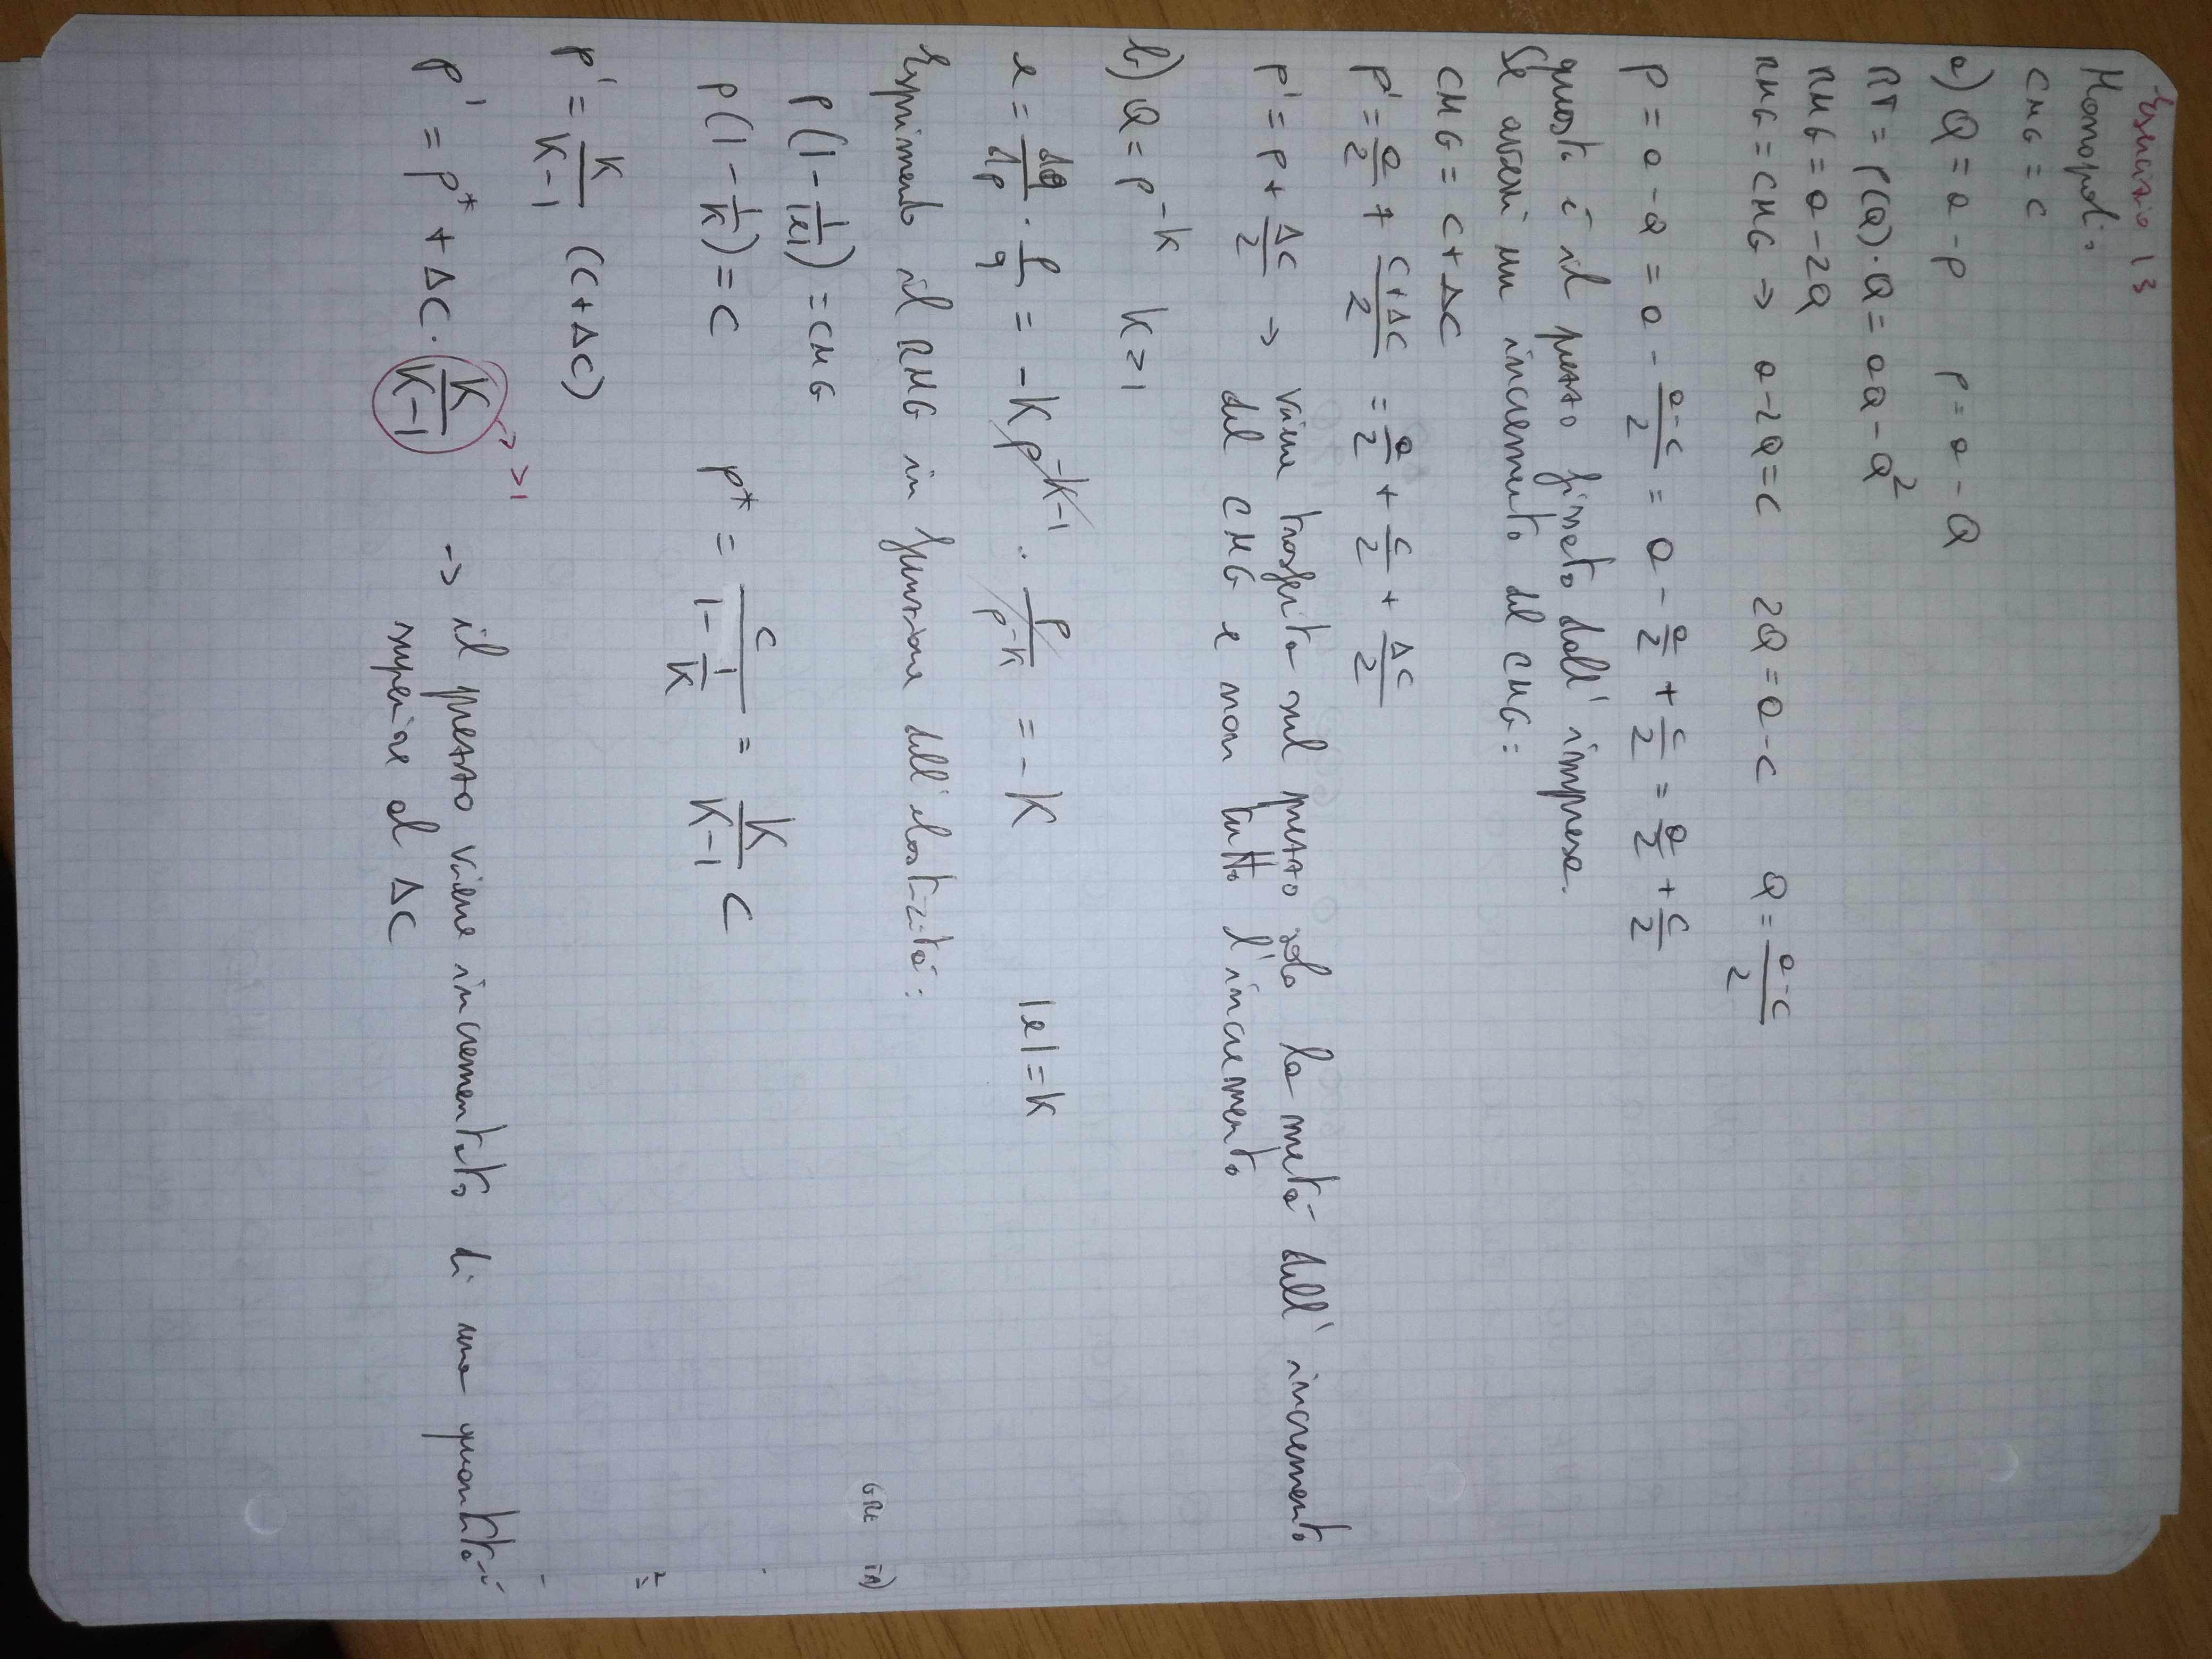 Esercizio 13
Monopoli:
CMG = C
a) Q = a - p    p = a - Q
RT = p(Q)·Q = aQ - Q²
RMG = a - 2Q
RMG = CMG → a - 2Q = C    2Q = a - C    Q = (a-C)/2
p = a - Q = a - (a-C)/2 = a - a/2 + C/2 = a/2 + C/2
questo è il prezzo fissato dall'impresa.
Se avessi un incremento del CMG:
CMG = C + ΔC
p' = a/2 + (C+ΔC)/2 = a/2 + C/2 + ΔC/2
p' = p + ΔC/2 → viene trasferita sul prezzo solo la metà dell'incremento
del CMG e non tutto l'incremento
b) Q = p^-K    K > 1
e = dq/dp · p/q = -K p^-K-1 · p/p^-K = -K    |e| = K
Esprimendo il RMG in funzione dell'elasticità:
p(1 - 1/|e|) = CMG
p(1 - 1/K) = C    p* = C/(1 - 1/K) = K/(K-1) C
p' = K/(K-1) (C + ΔC)
p' = p* + ΔC · K/(K-1) → >1 → il prezzo viene incrementato di una quantità
superiore al ΔC